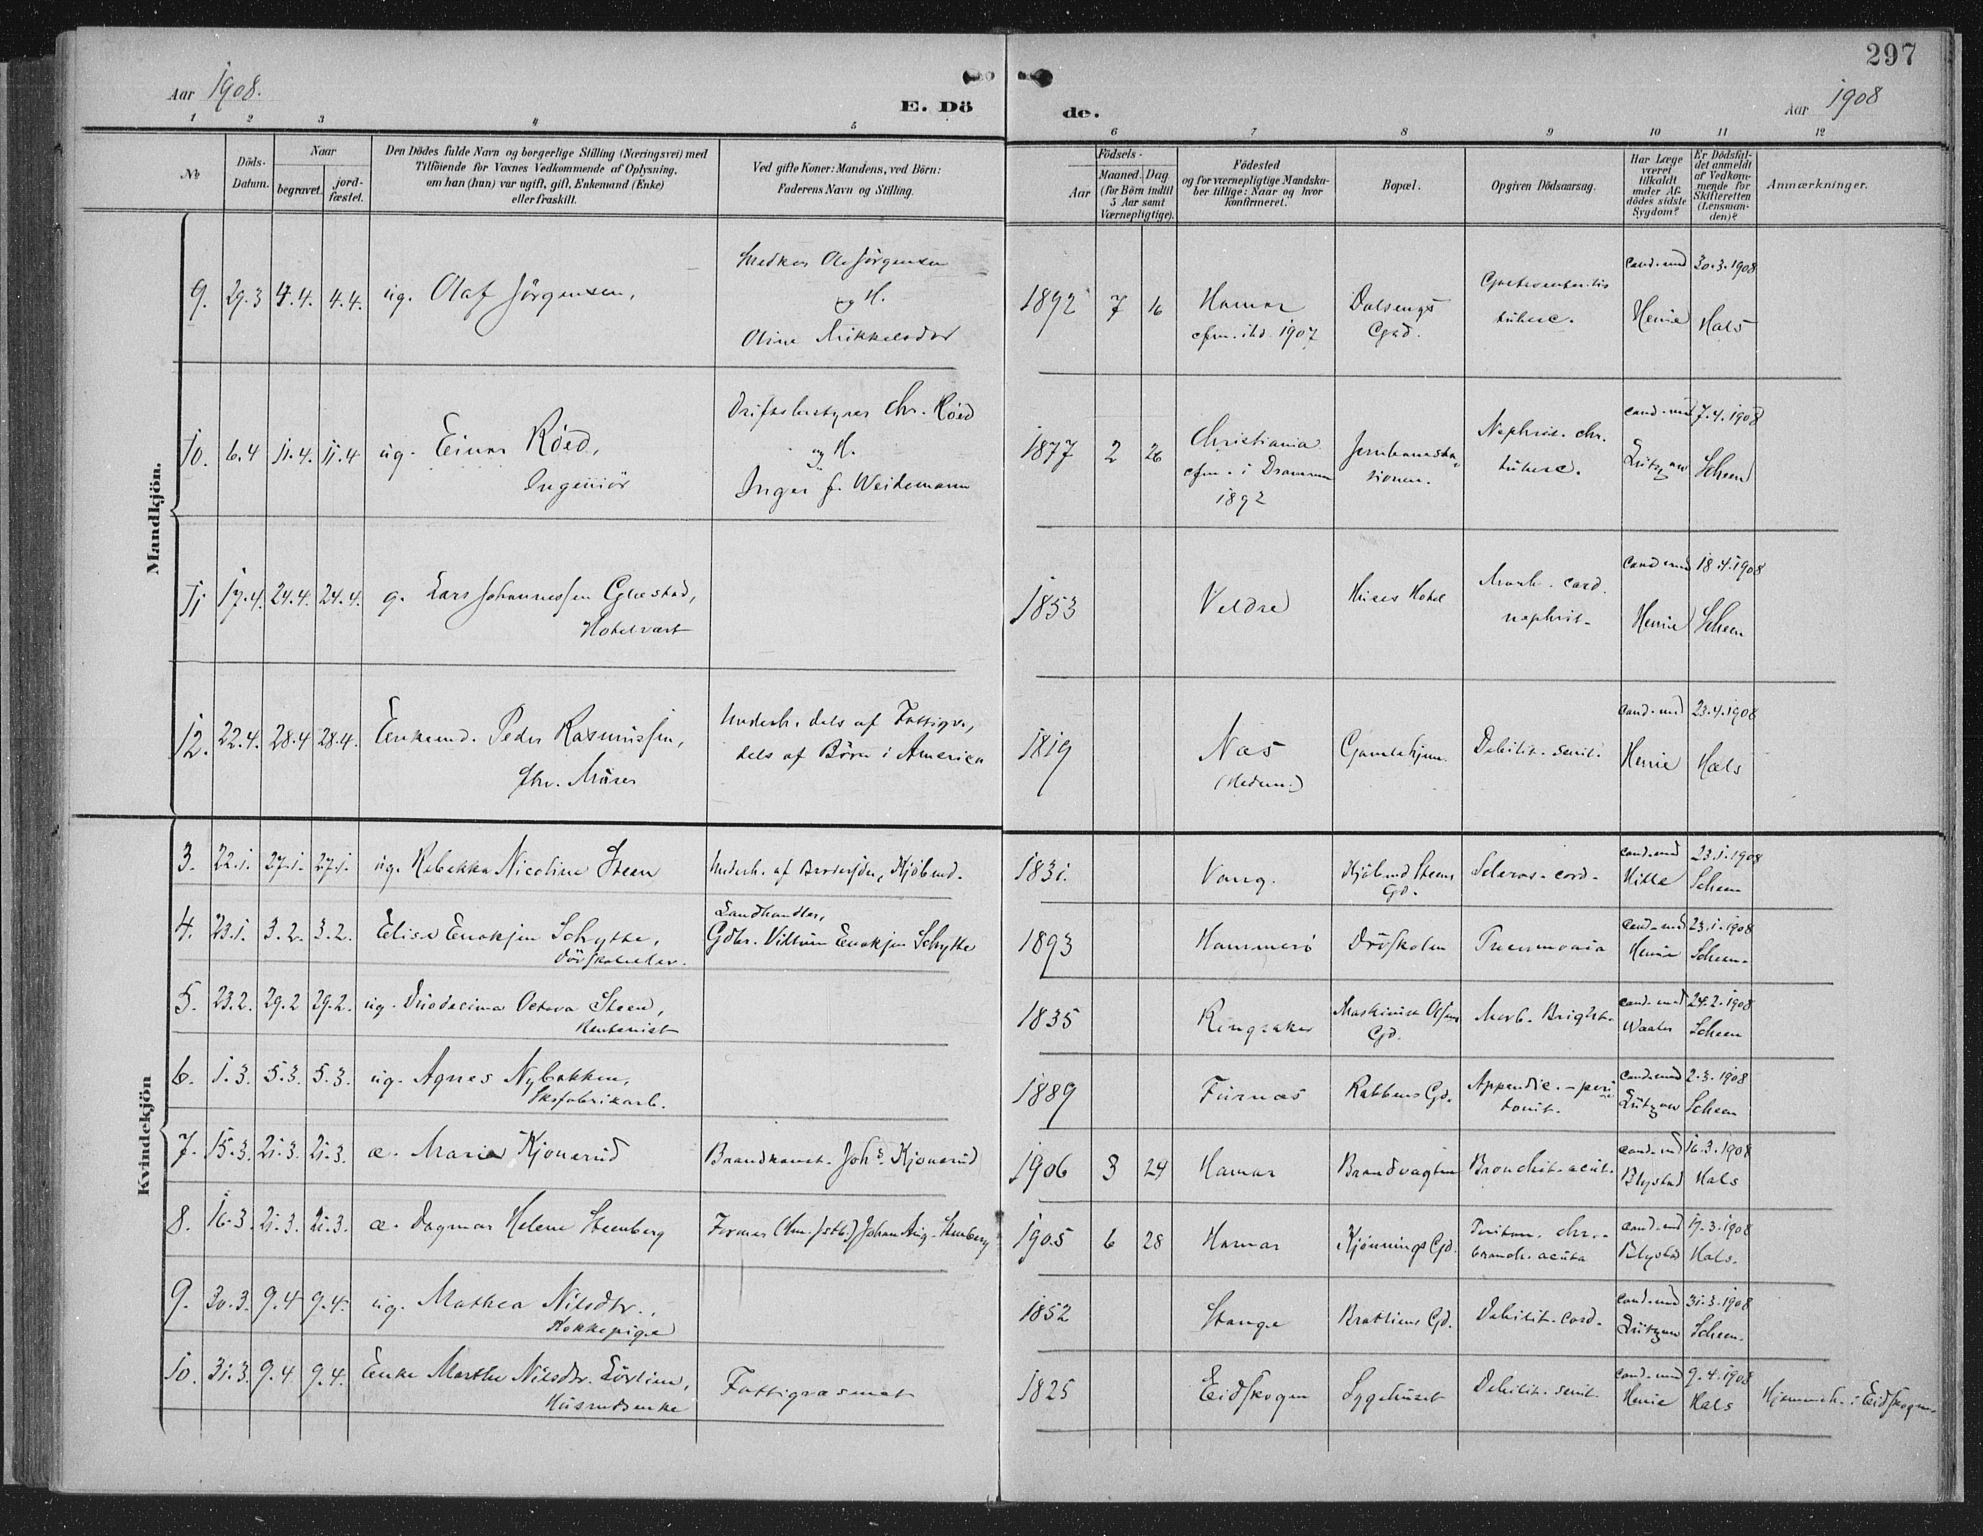 297
Aar 1908.
E. Dö
de.
Aar 1908
1 2 3 4 5 6 7 8 9 10 11 12
No
Döds-
Datum.
Naar
begravet.
jord-
fæstet.
Den Dödes fulde Navn og borgerlige Stilling (Næringsvei) med
Tilföiende for Voxnes Vedkommende af Oplysning,
om han (hun) var ugift, gift, Enkemand (Enke)
eller fraskilt.
Ved gifte Koner: Mandens, ved Börn:
Faderens Navn og Stilling.
Födsels-
Aar
Maaned. Dag
(for Börn indtil
5 Aar samt
Værnepligtige).
Födested
og for værnepligtige Mandska-
ber tillige: Naar og hvor
konfirmeret.
Bopæl.
Opgiven Dödsaarsag.
Har Læge
været
tilkaldt
under Af-
dödes sidste
Sygdom?
Er Dödsfal-
det anmeldt
af Vedkom-
mende for
Skifteretten
(Lensman-
den)?
Anmærkninger.
Mandkjön.
9. 29.3 4.4. 4.4. ug. Olaf Jörgensen,
og H.
Oline Mikkelsdtr
1892 7 16 Hamar
cfm. ibd. 1907
Dalsengs
Cgad.
tuberc.
cand. med
Henie
30.3.1908
Hals
10. 6.4 11.4. 11.4 ug. Einar Röed,
Ingeniör
Driftsbestyrer Chr. Röed
og H.
Inger f. Weidemann
1877 2 26 Christiania
cfm. i Drammen
1892
Jernbanesta-
tionen.
Nephrit. chr.
tuberc.
cand. med
Lützow
7.4.1908
Scheen
11 17.4. 24.4. 24.4. g. Lars Johannessen Gjæstad,
Hotelvært
1853 Veldre
Huses Hotel
Morb. cord.
nephrit.
cand med
Henie
18.4.1908
Scheen
12. 22.4. 28.4 28.4. Enkemd. Peder Rasmussen,
fhv. Murer
Underh. dels af Fattigv.,
dels af Börn i America
1819 Næs
(Hedem.)
Gamlehjem.
Debilit. senil.
cand. med
Henie
23.4.1908
Hals
Kvindekjön
3. 22.1. 27.1. 27.1. ug. Rebekka Nicoline Steen
Underh. af Brodersön, Kjöbmd.
1831. Vang.
Kjöbmd Steens
Gd.
Scleros. cord.
cand. med
Hille
23.1.1908
Scheen
4. 23.1. 3.2. 3.2. Elise Enoksen Schytte,
Dövskoleelev.
Landhandler,
Gdbr. Vilhum Enoksen Schytte
1893 Hammerö
Dövskolen
Pneumonia
cand. med
Henie
23.1.1908
Scheen.
5. 23.2. 29.2 29.2. ug. Duodecima Octava Steen,
Rentenist
1835 Ringsaker
Maskinist Olsens
Gd.
Morb. Bright.
cand. med
Waaler
24.2.1908
Scheen
6. 1.3. 5.3. 5.3. ug. Agnes Nybakken,
Skofabrikarb.
1889 Furnæs
Rabbens Gd.
Appendic. - peri
tonit.
cand. med
Lützow
2.3.1908
Scheen
7. 15.3. 21.3. 21.3. æ. Maria Kjonerud
Brandkonst. Johs. Kjonerud
1906 3 24 Hamar
Brandvagten
Bronchit. acut.
cand. med
Blystad
16.3.1908
Hals
8. 16.3. 21.3. 21.3. æ. Dagmar Helene Steenberg
Former (Hm. Jstb.) Johan Aug. Stenberg
1905 6 28 Hamar
Kjönnings Gd.
Periton. chr.
bronch. acuta
cand. med
Blystad
17.3.1908
Hals.
9. 30.3. 9.4 9.4. ug. Mathea Nilsdtr.,
Kokkepige
1852 Stange
Brattiens Gd.
Debilit. cord.
cand. med
Lützow
31.3.1908
Scheen.
10. 31.3. 9.4. 9.4. Enke Marthe Nilsdtr. Lövlien,
Husmdsenke
Fattigvæsenet
1825 Eidskogen
Sygehuset
Debilit. senil.
cand. med
Henie
9.4.1908
Hals
Hjemmeh. i Eidskogen.